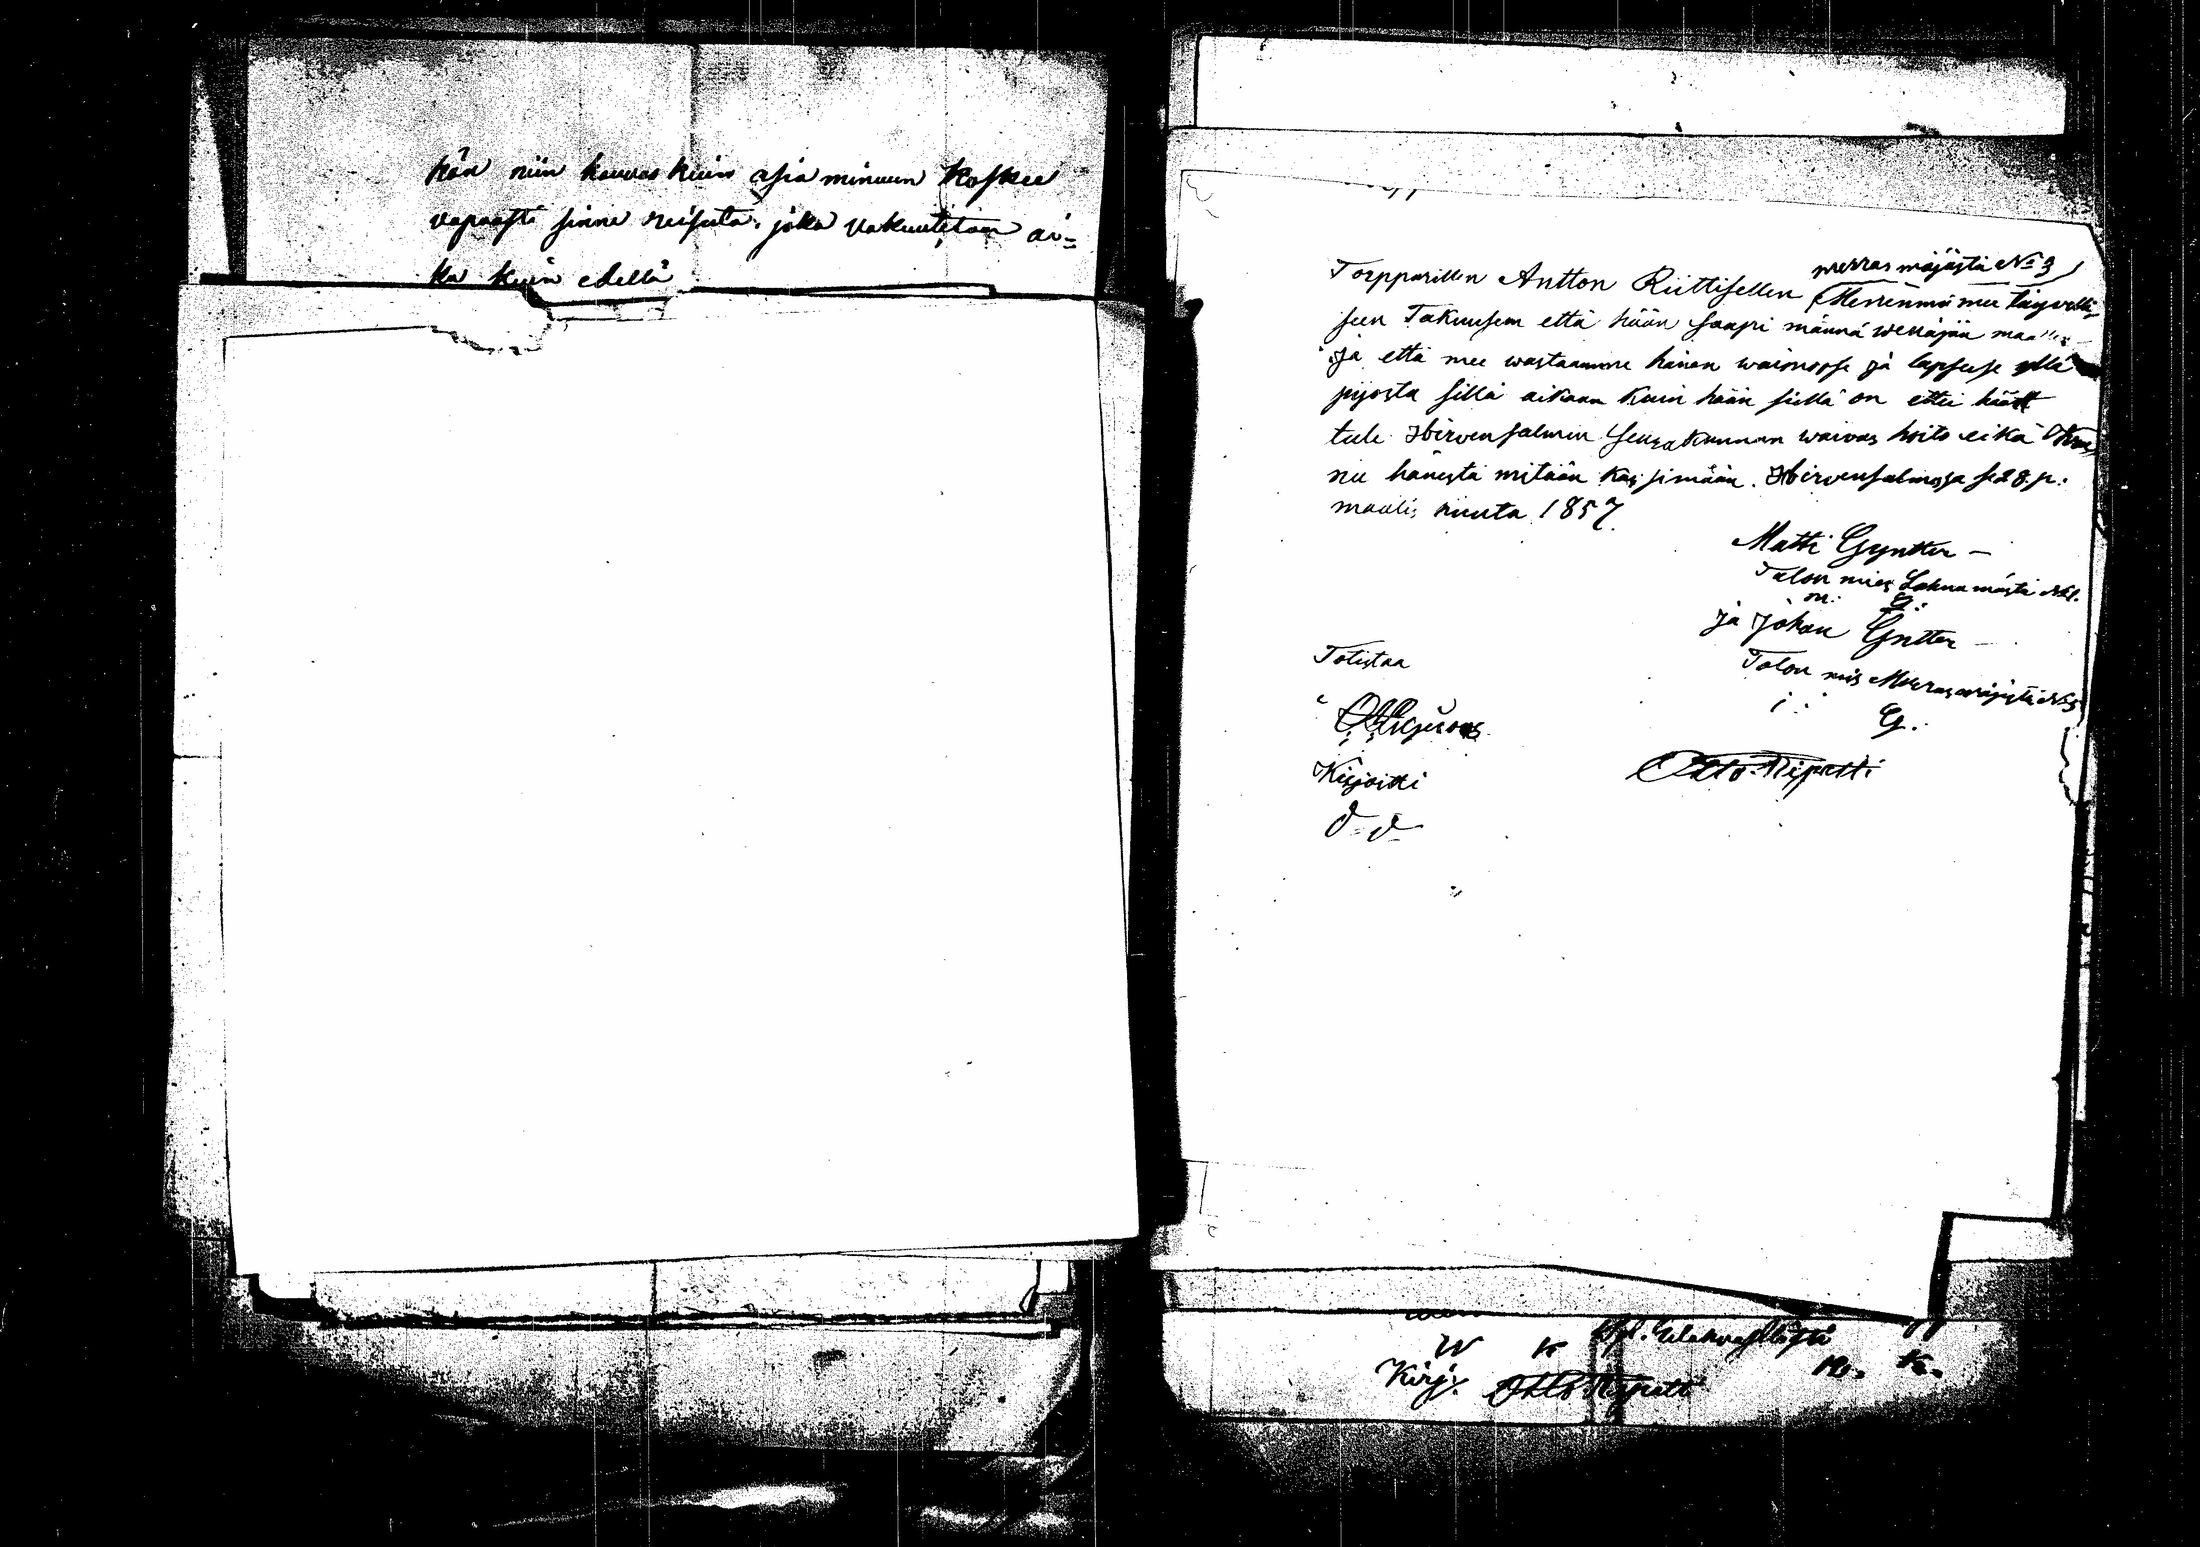 hän niin kauvas kuin asia minuun koskee
vapaasti sinne reisuta, joka vakuutetaan ai=
ka kuin edellä
merras mäjästä No 3
Torpparillen Antton Riittisellen Menemmä mee täyvelli=
seen Takuusen että hään saapi männä wenäjän maallen
ja että mee wastaamme hänen waimopse ja lapseise yllä
pijosta sillä aikaan kuin hään siellä on ettei häät
tule Hirvensalmen seurakunnan waivas hoito eikä
nu hänestä mitään kärsimään. Hirvensalmessa se 28. p:
maalis kuuta 1857.
Matti Gyntter —
Talon mies Lahnamästä No 1.
M: G:
ja Johan Gntter —
Talon mies Merrasmäjästä No 3
j: G:
Totistaa
Kirjoitti
Otto Ripatti
W K
M. K.
Kirj. Otto Ripatti